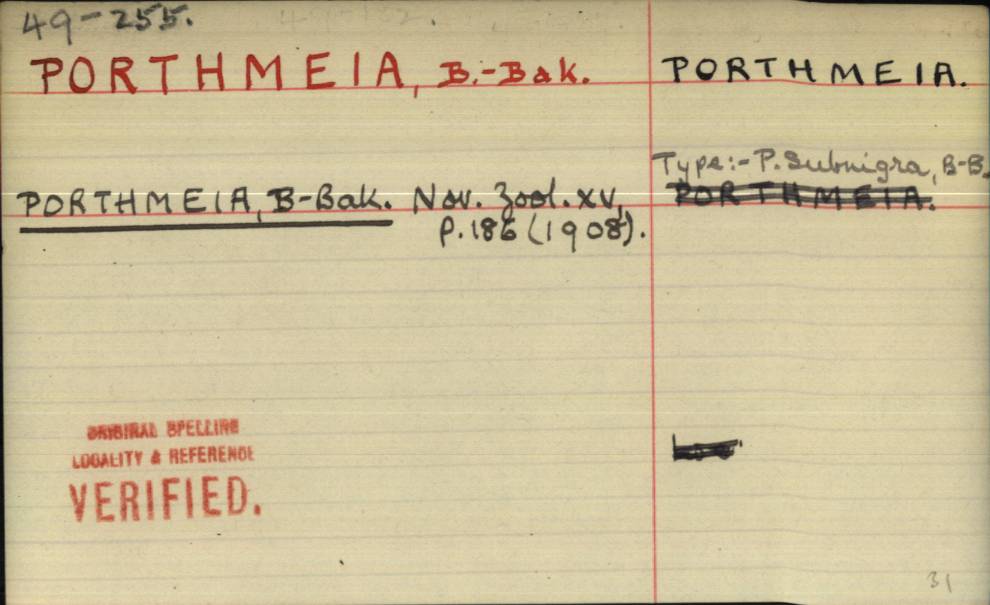 49-255.
PORTHMEIA, B.-Bak.
PORTHMEIA.
Type:- P. Subnigra, B-B.
PORTHMEIA.
PORTHMEIA, B-Bak. Nov. Zool. XV,
p. 186 (1908).
ORIGINAL SPELLING
LOCALITY & REFERENCE
VERIFIED.
31